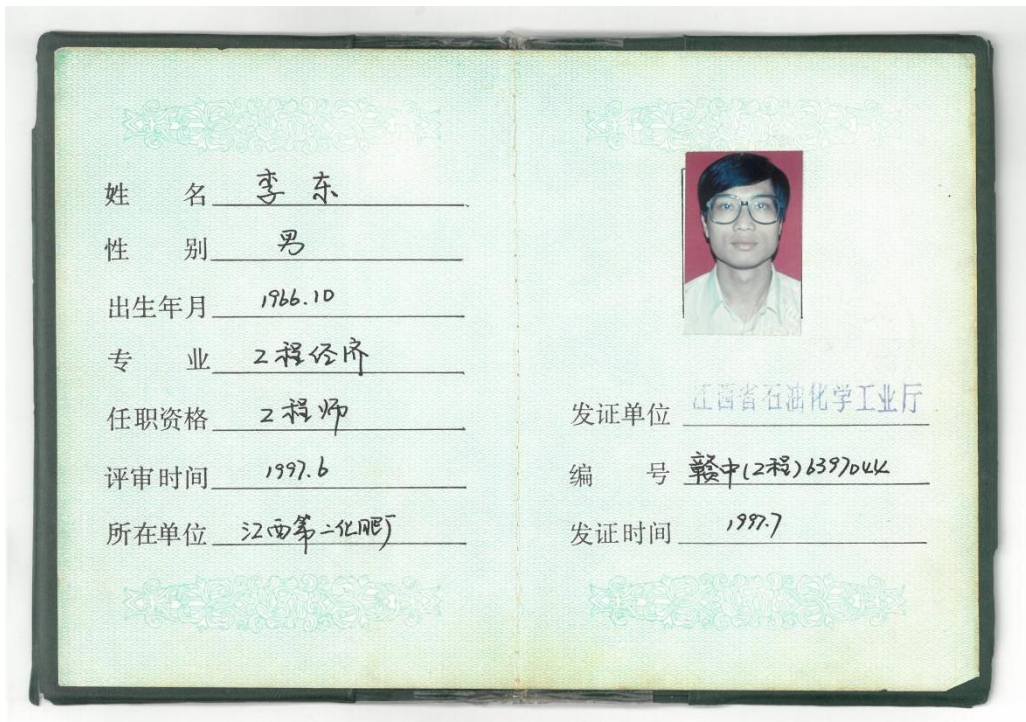 姓 名 李 东
性 别 男
出生年月 1966.10
专 业 工程经济
任职资格 工程师
评审时间 1997.6
所在单位 江西第二化肥厂
发证单位 江西省石油化学工业厅
编 号 赣中(工程)6397044
发证时间 1997.7